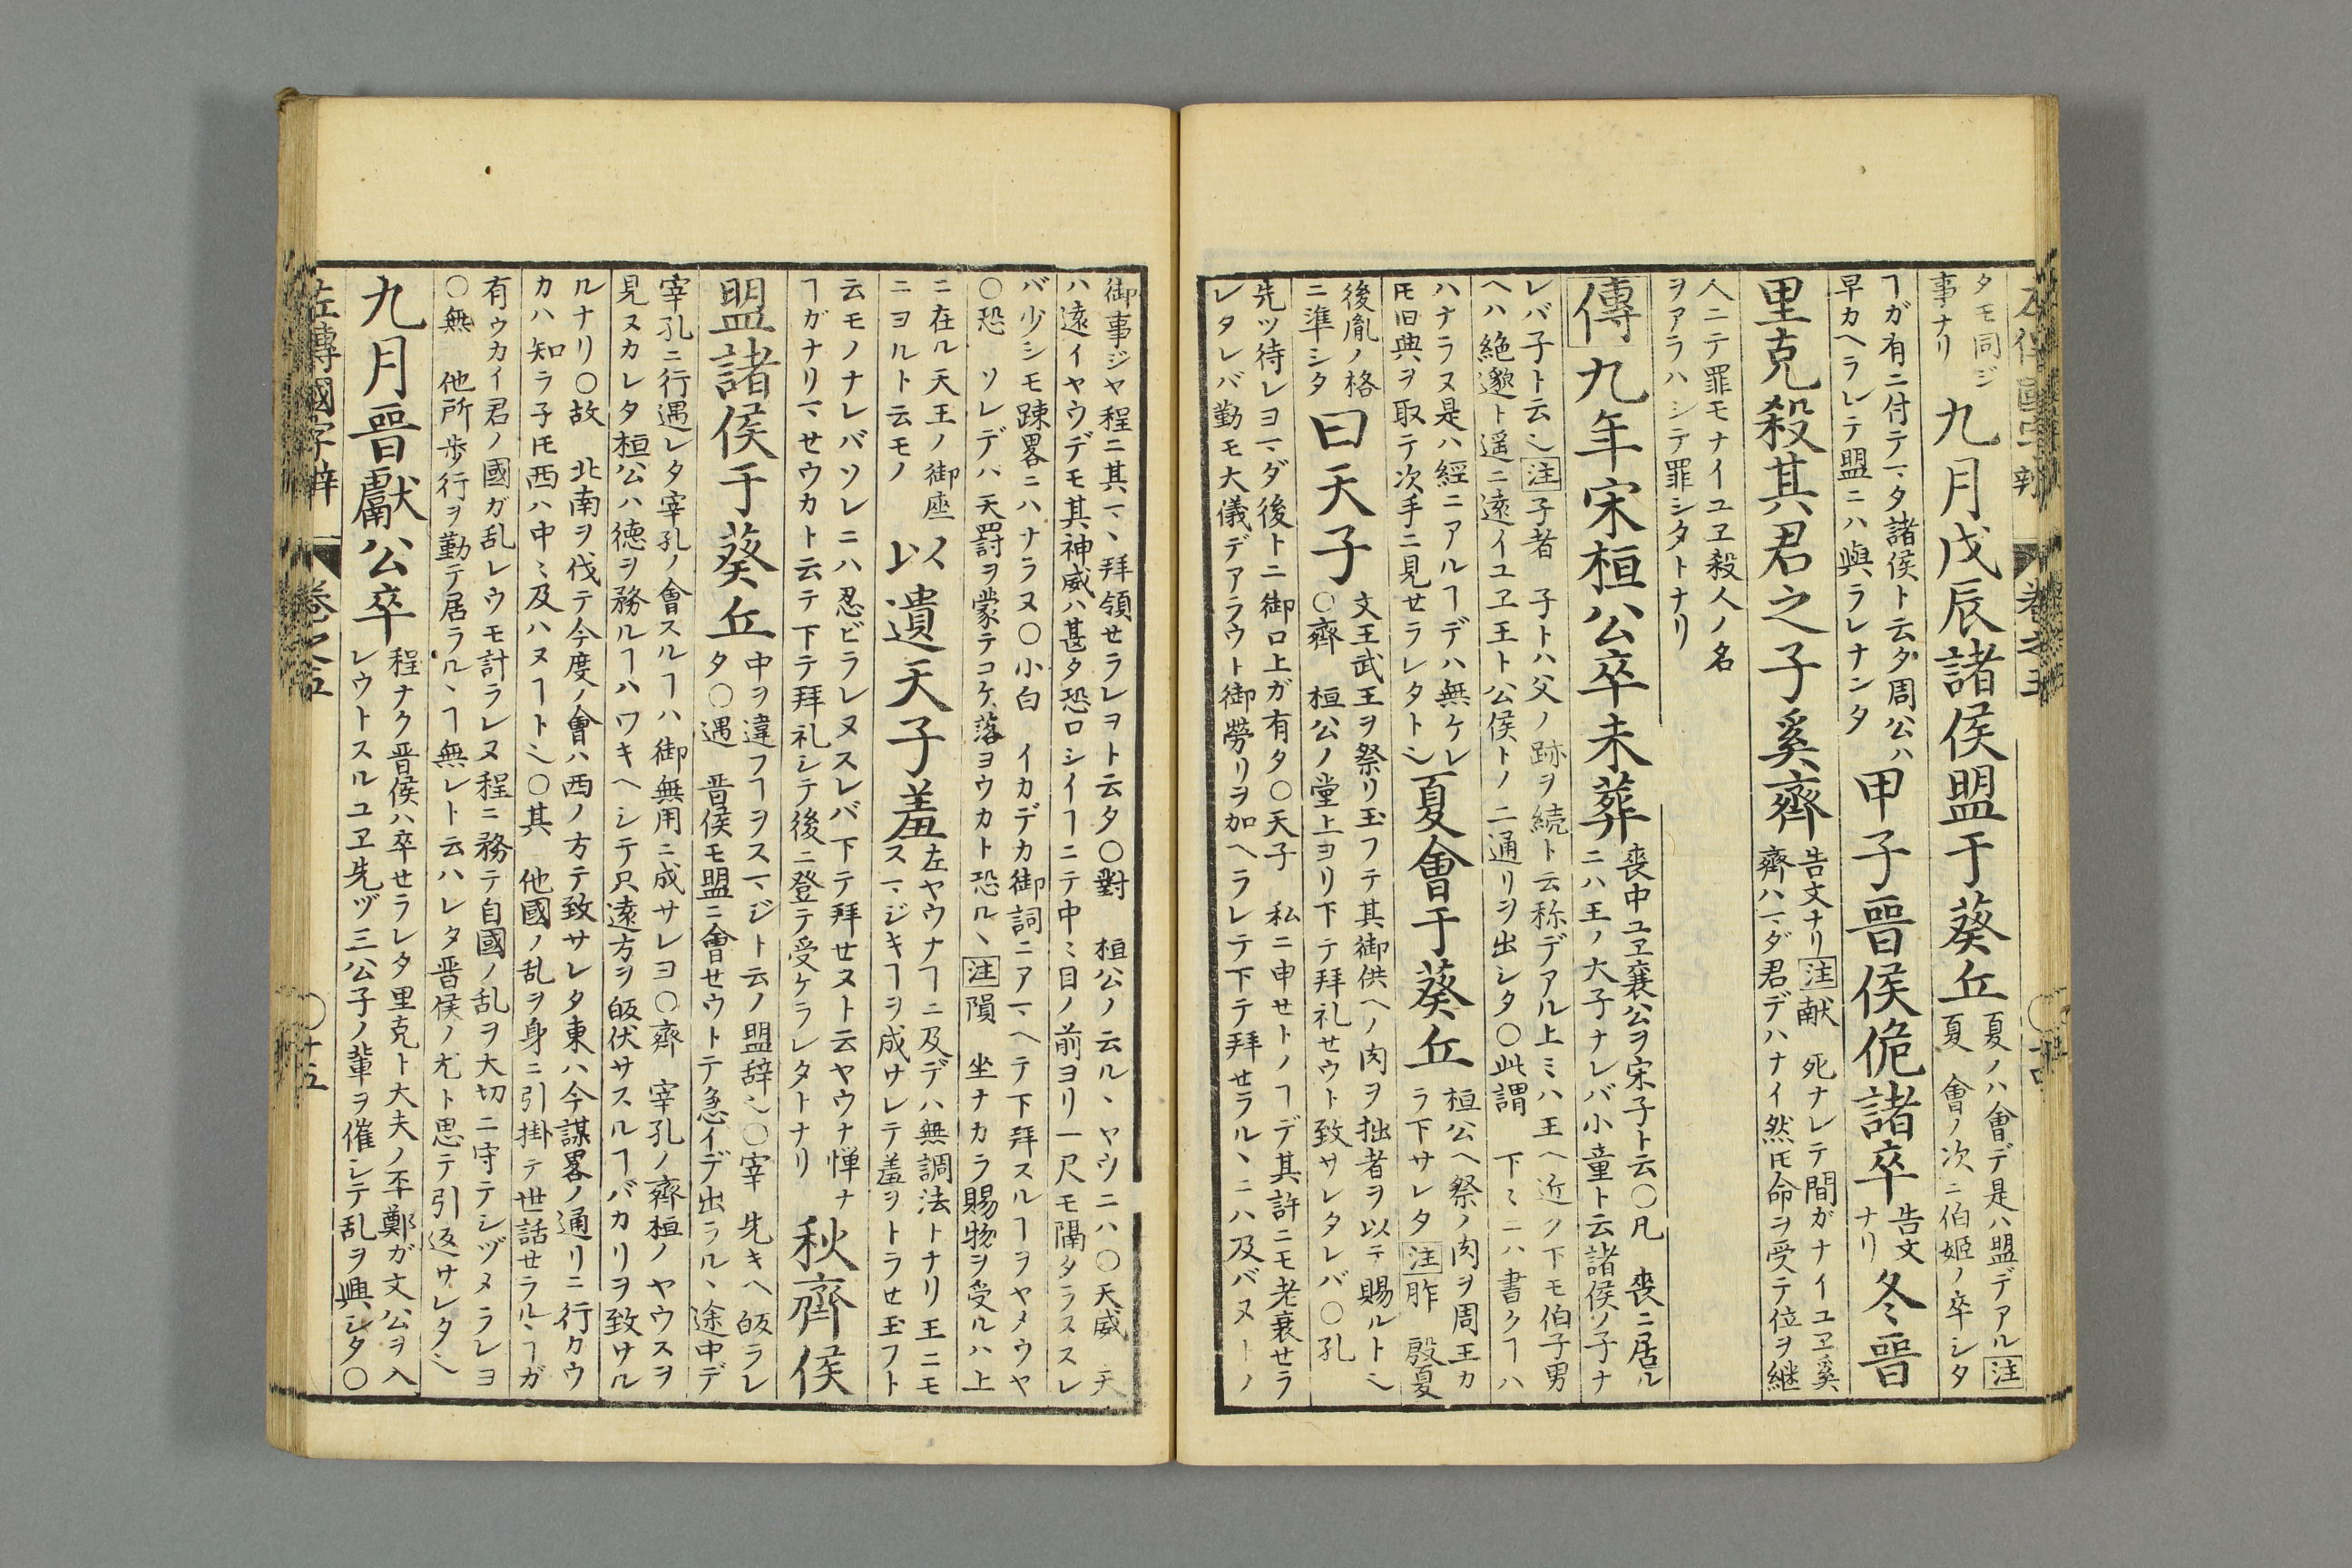 タモ同ジ
事ナリ
九月戊辰諸侯盟于葵丘
夏ノハ會デ是ハ盟デアル注
夏 會ノ次ニ伯姫ノ卒シタ
ヿガ有ニ付テマタ諸侯ト云タ周公ハ
早カヘラレテ盟ニハ與ラレナンタ
甲子晉侯佹諸卒
告文
ナリ
冬晉
里克殺其君之子奚齊
告文ナリ注献 死ナレテ間ガナイユヱ奚
齊ハマダ君デハナイ然ㇳモ命ヲ受テ位ヲ継
人ニテ罪モナイユヱ殺人ノ名
ヲアラハシテ罪シタトナリ
傳九年宋桓公卒未葬
喪中ユヱ襄公ヲ宋子ト云〇凡 喪ニ居ル
ニハ王ノ大子ナレバ小童ト云諸侯ノ子ナ
レバ子ト云〻注子者 子トハ父ノ跡ヲ続ト云称デアル上ミハ王ヘ近ク下モ伯子男
ヘハ絶邈ト遥ニ遠イユヱ王ト公侯トノ二通リヲ出シタ〇此謂 下ミニハ書クヿハ
ハナラヌ是ハ經ニアルヿデハ無ケレ
ㇳモ旧典ヲ取テ次手ニ見セラレタト〻
夏會于葵丘
桓公ヘ祭ノ肉ヲ周王カ
ラ下サレタ注胙 殷夏
後胤ノ格
ニ準シタ
曰天子
文王武王ヲ祭リ玉フテ其御供ヘノ肉ヲ拙者ヲ以テ賜ルト〻
〇齊 桓公ノ堂上ヨリ下テ拜礼セウト致サレタレバ〇孔
先ツ待レヨマダ後トニ御口上ガ有タ〇天子 私ニ申セトノヿデ其許ニモ老衰セラ
レタレバ勤モ大儀デアラウト御勞リヲ加ヘラレテ下テ拜セラルヽニハ及バヌトノ
御事ジヤ程ニ其マヽ拜領セラレヨト云タ〇對 桓公ノ云ルヽヤウニハ〇天威 天
ハ遠イヤウデモ其神威ハ甚タ恐ロシイヿニテ中ミ目ノ前ヨリ一尺モ隔タラヌスレ
バ少シモ踈畧ニハナラヌ〇小白 イカデカ御詞ニアマヘテ下拜スルヿヲヤメウヤ
〇恐 ソレデハ天罸ヲ蒙テコケ落ヨウカト恐ルヽ注隕 坐ナカラ賜物ヲ受ルハ上
ニ在ル天王ノ御座
ニヨルト云モノ
以遺天子羞
左ヤウナヿニ及デハ無調法トナリ王ニモ
スマジキヿヲ成サレテ羞ヲトラセ玉フト
云モノナレバソレニハ忍ビラレヌスレバ下テ拜セヌト云ヤウナ惮ナ
ヿガナリマセウカト云テ下テ拜礼シテ後ニ登テ受ケラレタトナリ
秋齊侯
盟諸侯于葵丘
中ヲ違フヿヲスマジト云ノ盟辞〻〇宰 先キヘ皈ラレ
タ〇遇 晋侯モ盟ニ會セウトテ急イデ出ラルヽ途中デ
宰孔ニ行遇レタ宰孔ノ會スルヿハ御無用ニ成サレヨ〇齊 宰孔ノ齊桓ノヤウスヲ
見ヌカレタ桓公ハ德ヲ務ルヿハワキヘシテ只遠方ヲ皈伏サスルヿバカリヲ致サル
ルナリ〇故 北南ヲ伐テ今度ノ會ハ西ノ方テ致サレタ東ハ今謀畧ノ通リニ行カウ
カハ知ラ子ㇳモ西ハ中ミ及ハヌヿト〻〇其 他國ノ乱ヲ身ニ引掛テ世話セラルヽヿガ
有ウカイ君ノ國ガ乱レウモ計ラレヌ程ニ務テ自國ノ乱ヲ大切ニ守テシヅメラレヨ
〇無 他所歩行ヲ勤テ居ラルヽヿ無レト云ハレタ晋侯ノ尤ト思テ引返サレタ〻
九月晉獻公卒
程ナク晋侯ハ卒セラレタ里克ト大夫ノ丕鄭ガ文公ヲ入
レウトスルユヱ先ヅ三公子ノ輩ヲ催シテ乱ヲ興シタ〇
左傳國字辯 卷之五 〇十五